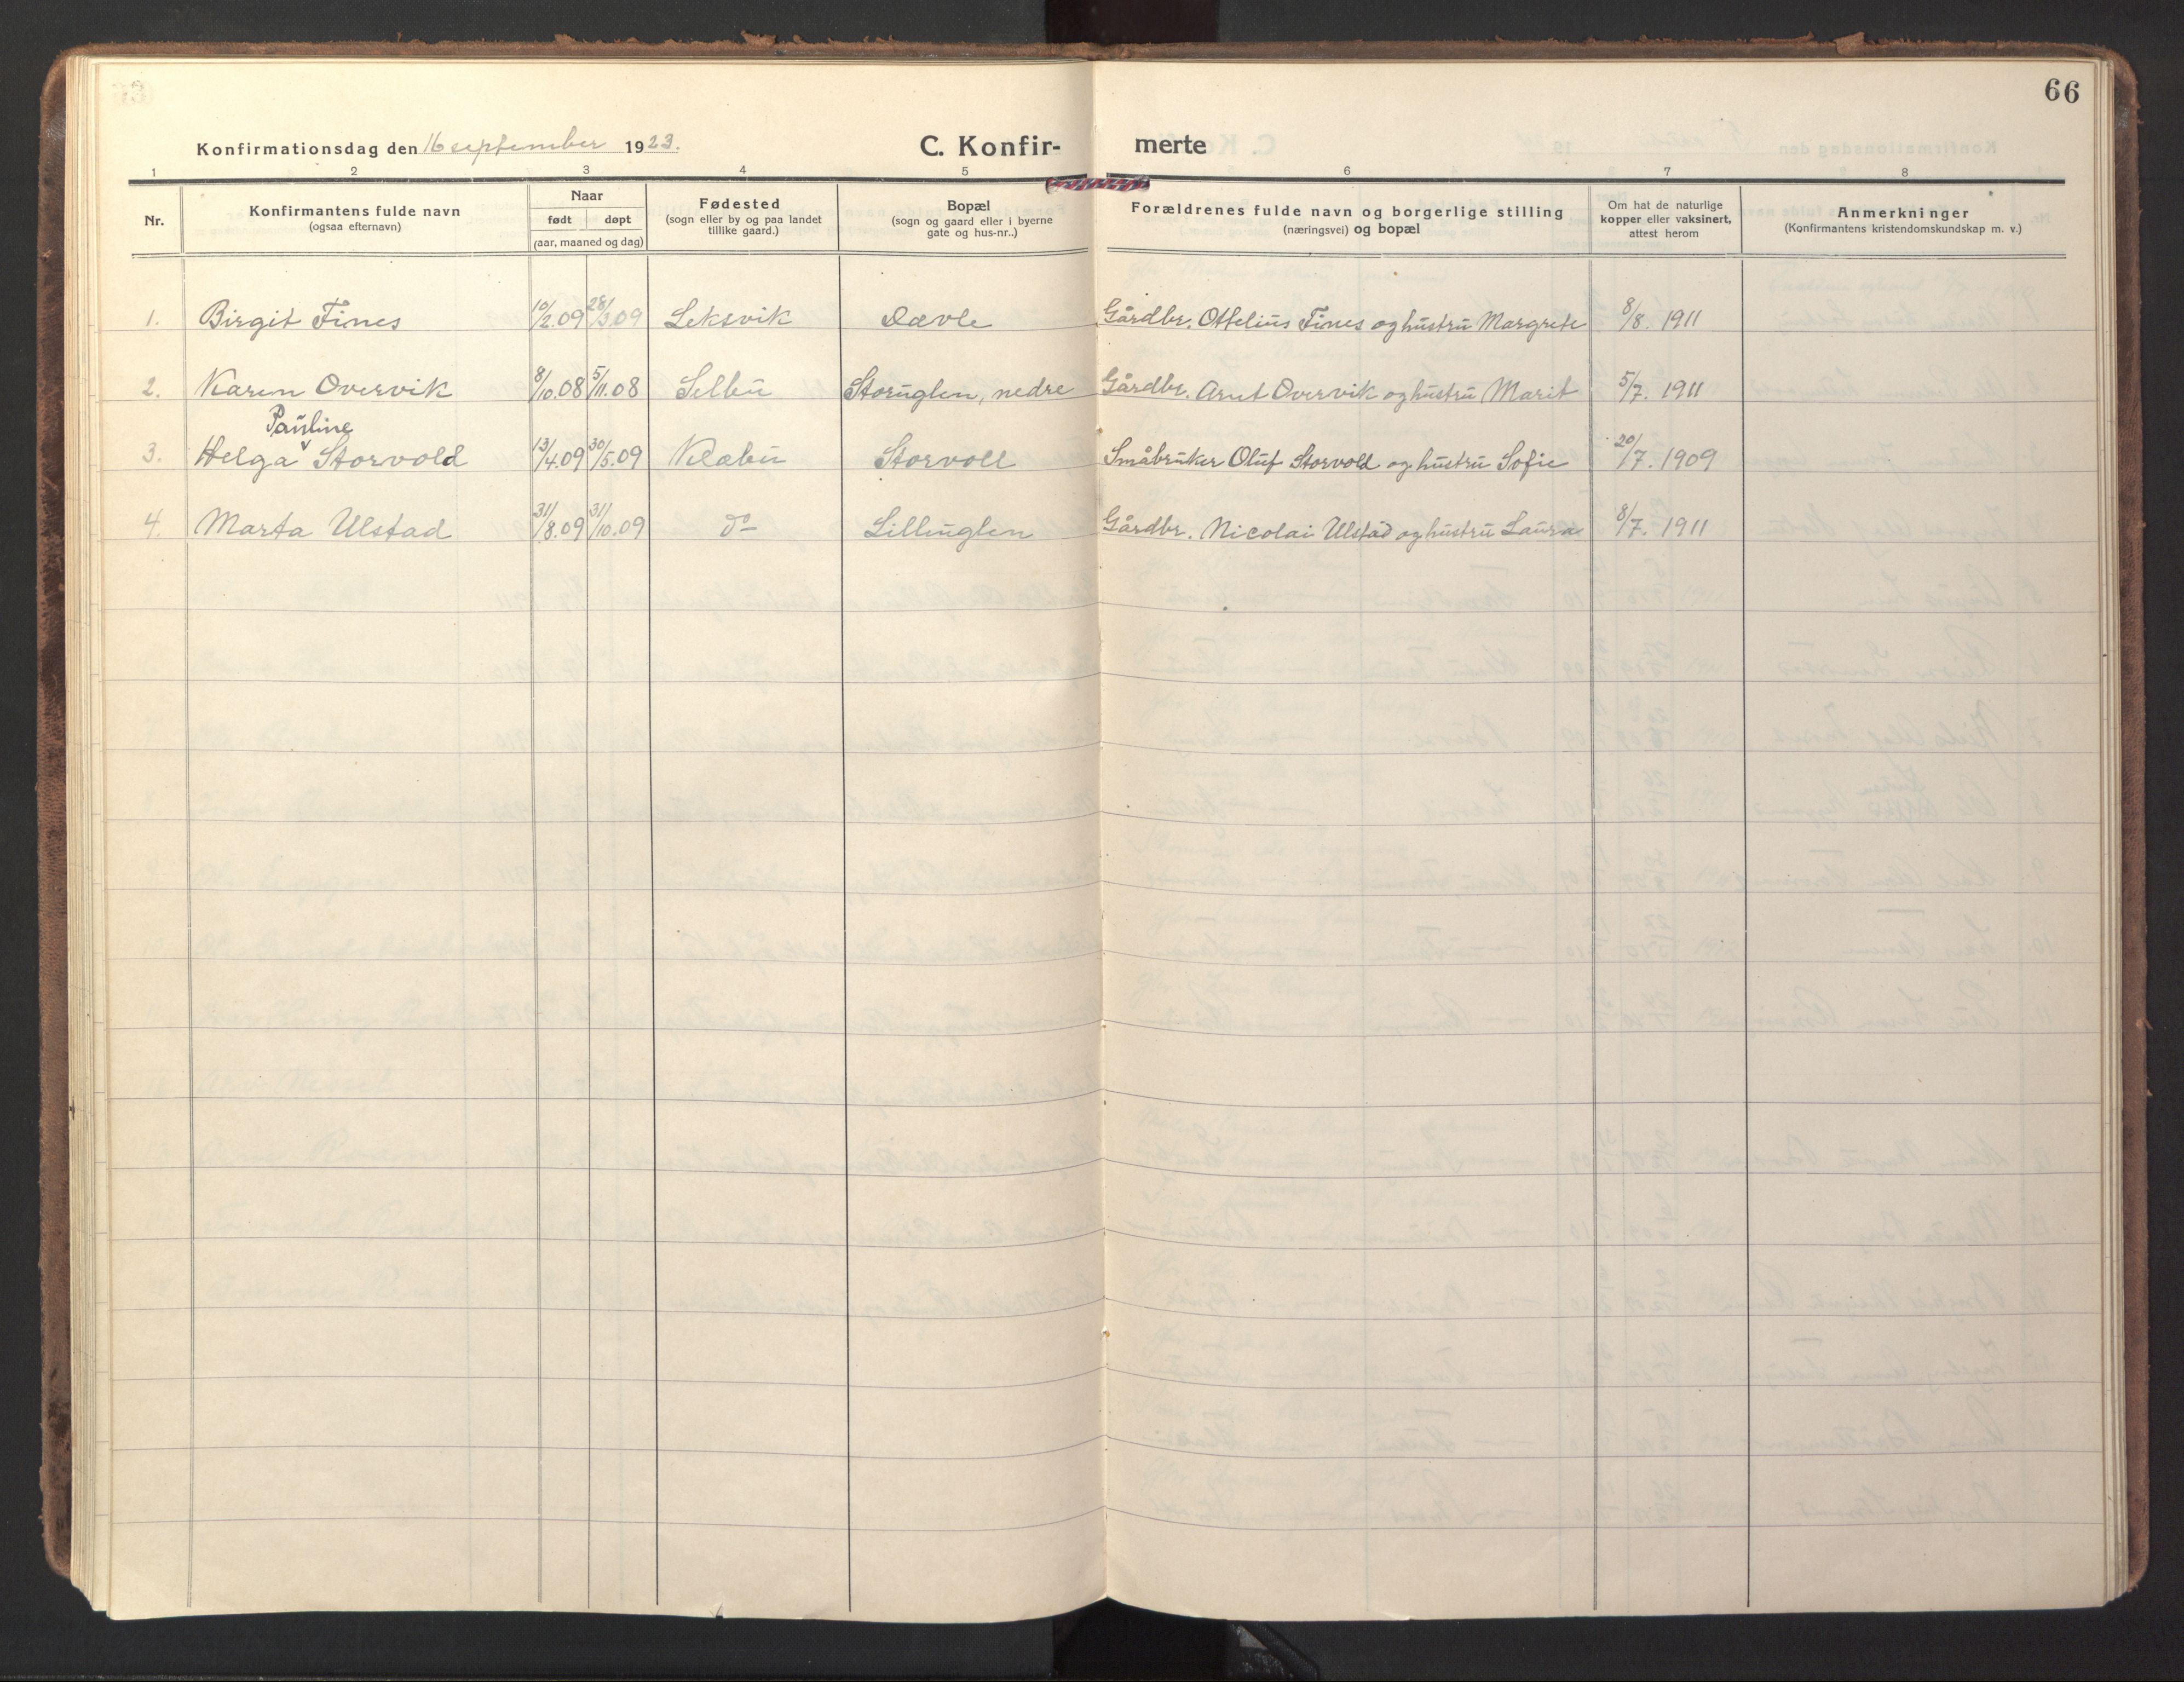 66
Konfirmationsdag den 16 september 1923.
C. Konfir- merte
1 2 3 4 5 6 7 8
Nr.
Konfirmantens fulde navn
(ogsaa efternavn)
Naar
født døpt
(aar, maaned og dag)
Fødested
(sogn eller by og paa landet
tillike gaard.)
Bopæl
(sogn og gaard eller i byerne
gate og hus-nr..)
Forældrenes fulde navn og borgerlige stilling
(næringsvei) og bopæl
Om hat de naturlige
kopper eller vaksinert,
attest herom
Anmerkninger
(Konfirmantens kristendomskundskap m. v.)
1. Birgit Fines 10/2.09 28/3.09 Leksvik Gårdbr. Ottelius Fines og hustru Margrete 8/8. 1911
2. Karen Overvik 8/10.08 5/11.08 Selbu Storuglen, nedre Gårdbr. Arnt Overvik og hustru Marit 5/7. 1911
Pauline
3. Helga Storvold 13/4.09 30/5.09 Klæbu Storvoll Småbruker Oluf Storvold og hustru Sofie 20/7. 1909
4. Marta Ulstad 31/8.09 31/10.09 do Lilluglen Gårdbr. Nicolai Ulstad og hustru Laura 8/7. 1911